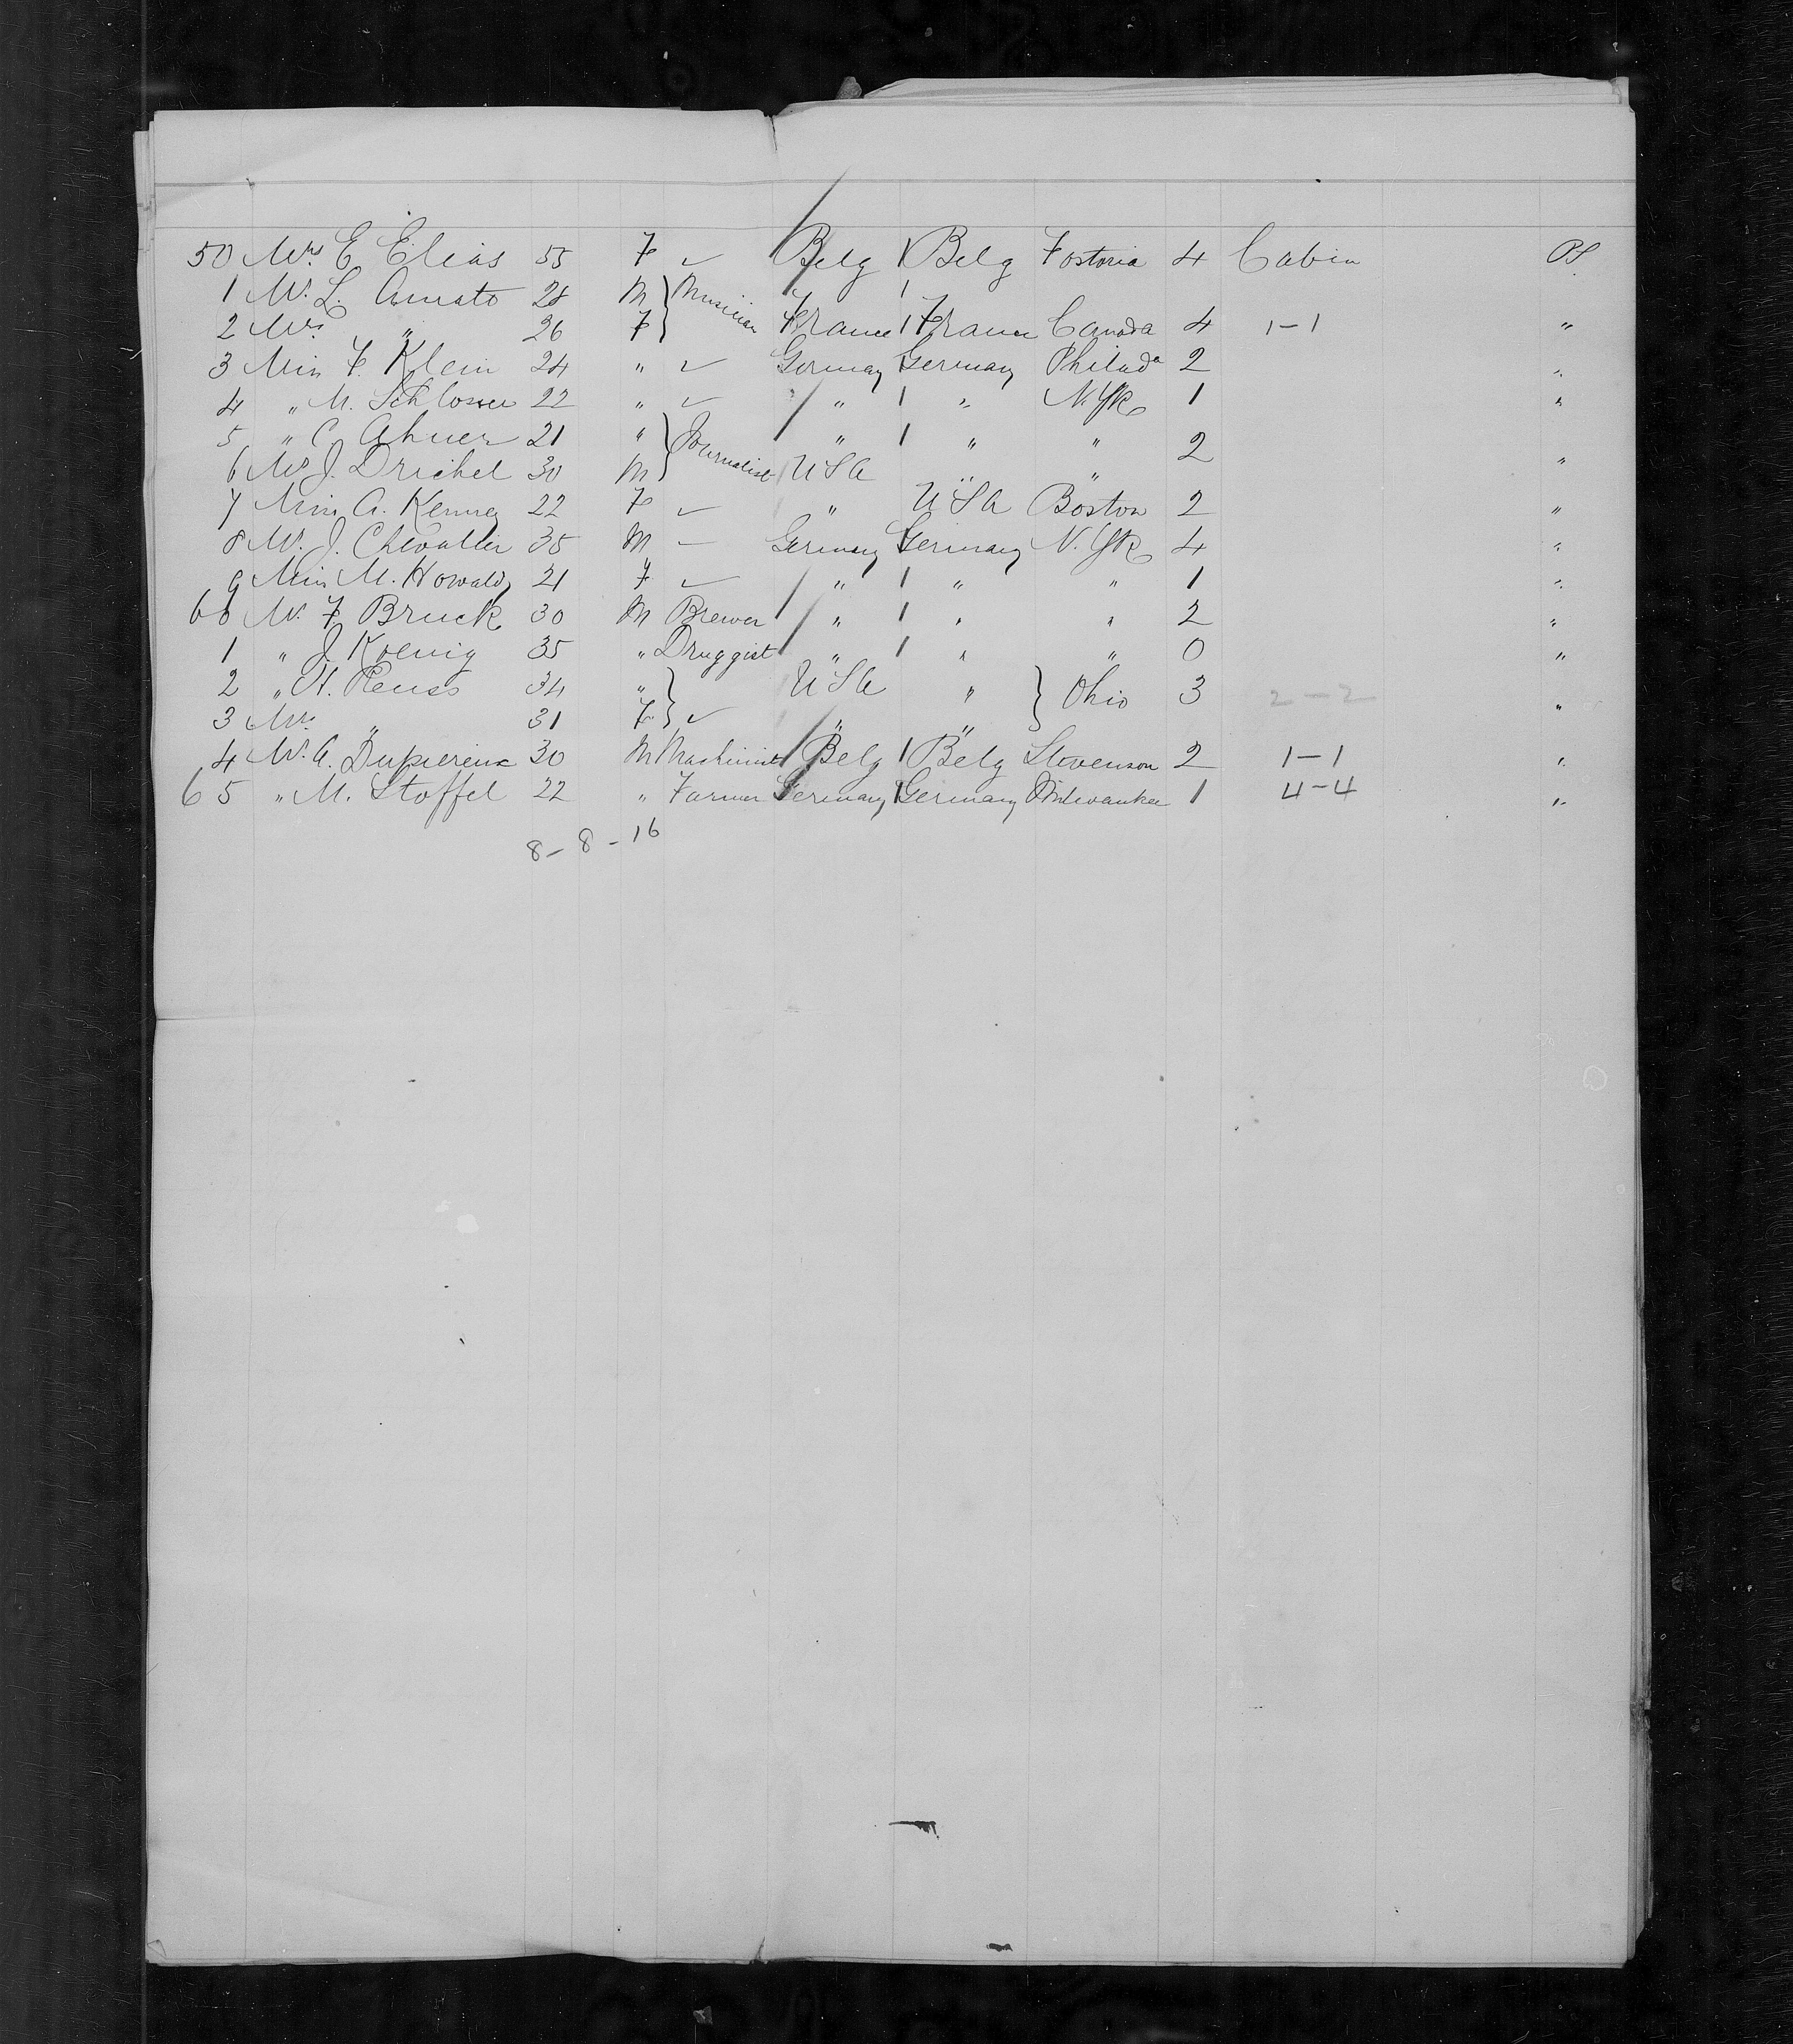 50 Mrs E Elias 55 F ✓ Belg Belg Fostoria 4 Cabin PS.
1 Mr. L. Amato 28 M } Musician
2 Mrs. " 26 F } France France Canada 4 1-1 "
3 Miss F. Klein 24 " ✓ Germany Germany Philada 2 "
4 " M. Schlosser 22 " ✓ " " N.Yk 1 "
5 " C. Ahner 21 " } Journalist " " " 2
6 Mr J. Drichel 30 M } USA " " "
7 Miss A. Kenney 22 F ✓ " USA Boston 2 "
8 Mr. J. Chevallier 35 M — Germany Germany N.Yk 4 "
9 Miss M. Howald 21 F ✓ " " " 1 "
60 Mr. F Bruck 30 M Brewer " " " 2 "
1 " J Koenig 35 " Druggist " " " 0 "
2 " H. Reuss 34 " } USA " } Ohio 3 2-2
3 Mrs. " 31 F } ✓ " " "
4 Mr. A. Dupiereux 30 M Machinist Belg Belg Stevenson 2 1-1 "
65 " M. Stoffel 22 " Farmer Germany Germany Milwaukee 1 4-4 "
8-8-16